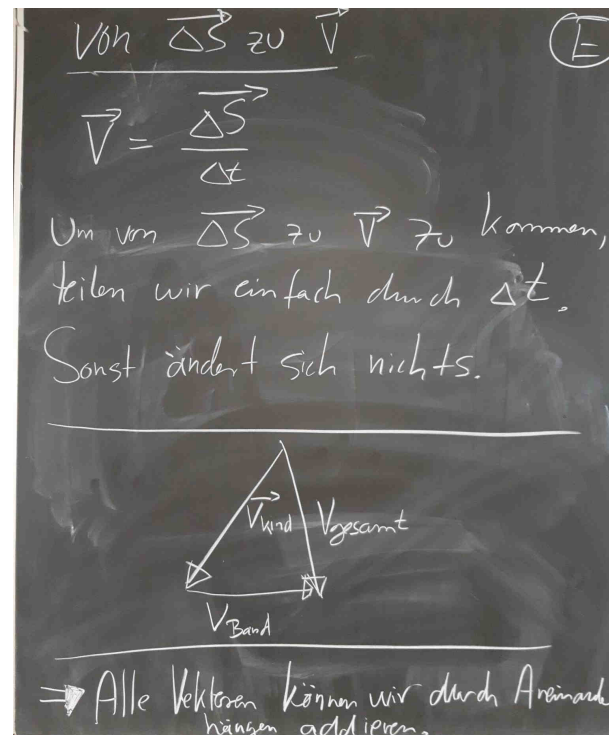 Von Δs⃗ zu v⃗ E
v⃗ = Δs⃗ / Δt
Um von Δs⃗ zu v⃗ zu kommen,
teilen wir einfach durch Δt.
Sonst ändert sich nichts.
v⃗Kind Vgesamt
VBand
⇒ Alle Vektoren können wir durch Aneinande
hängen addieren.